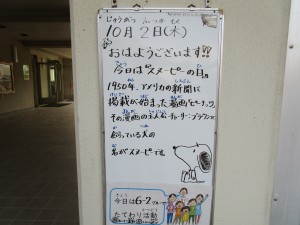 じゅうがつ ふつか もく
10月2日(木)
おはようございます!!
今日は"スヌーピーの日"。
1950年、アメリカの新聞に
掲載が始まった漫画「ピーナッツ」。
その漫画の主人公・チャーリー・ブラウンが
飼っている犬の
名がスヌーピーです。
きょう
今日は6-2
たてわり活動